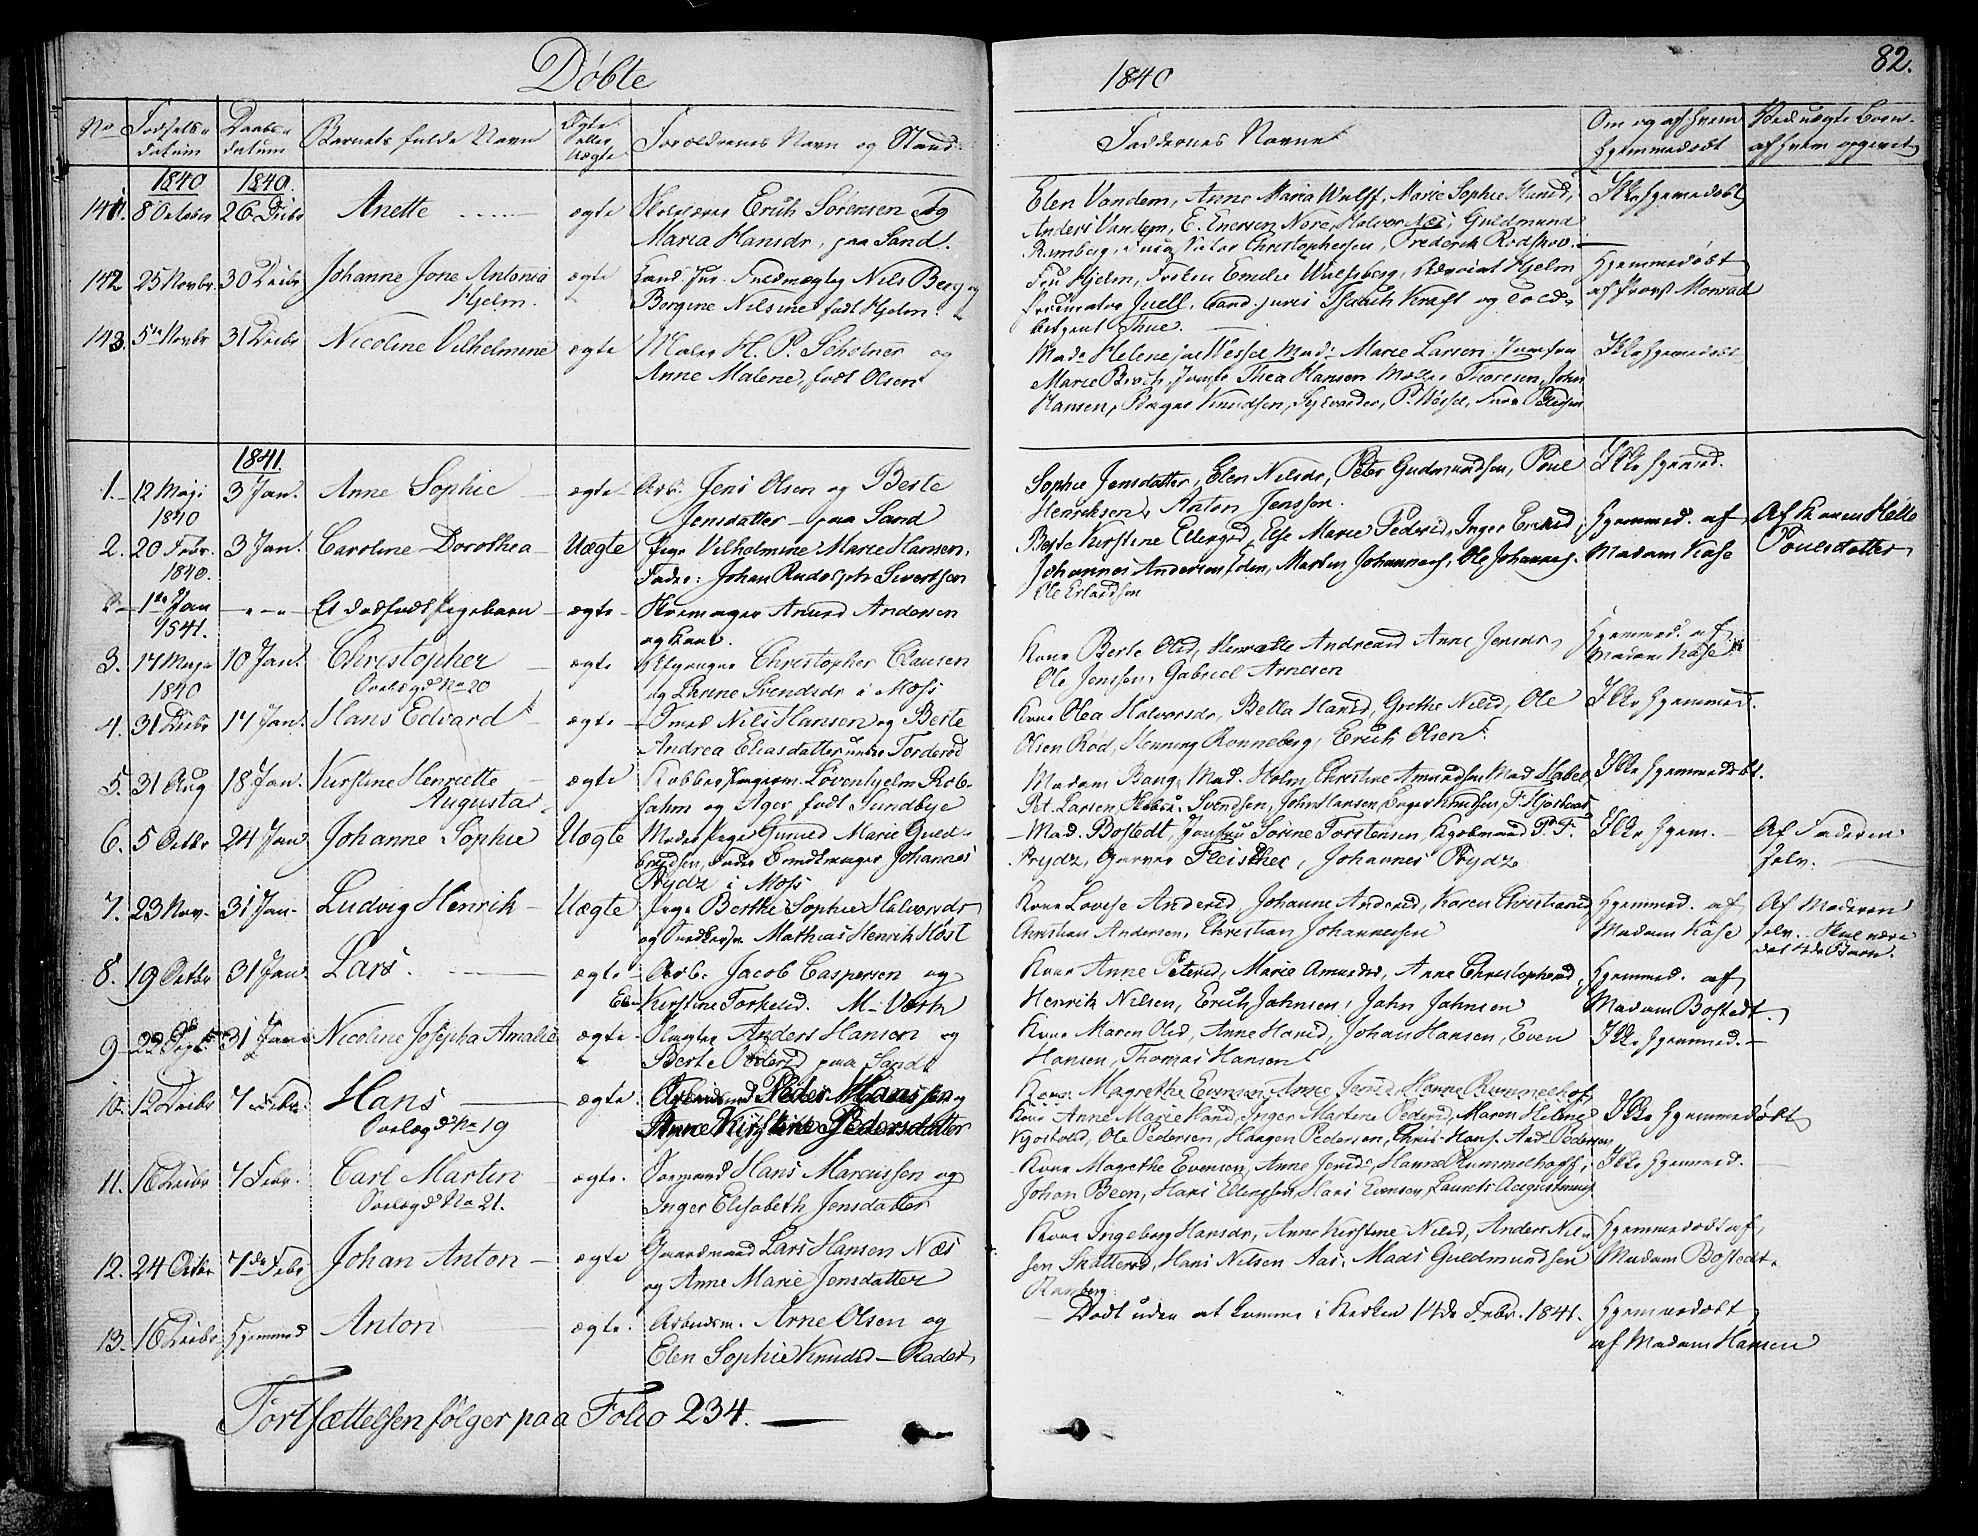 Döbte
1840
82.
No
Fødsels-
datum
Daabs-
datum
Barnets fulde Navn
Ægte
eller
Uægte
Forældrenes Navn og Stand.
Faddernes Navne
Om og af hvem
hjemmedøbt
Ved uægte Børn
af hvem opgivet
1840 1840.
141. 8 October 26 Decbr Anette ægte Erich Sörensen og
Maria Hansdr, paa Sand.
Elen Vandem, Anne Maria Wulff, Marie Sophie Hansd,
Anders Vandem, E. Enersen Nore, Halvor Næs, Guldmund
Ramberg, Christophersen, Frederik Rodskov.
Ikke hjemmedøbt
142 25 Novbr 30 Decbr Johanne Jone Antonia
Hjelm.
ægte Cand. Jur. Fuldmægtig Nils Berg og
Bergine Nilsine født Hjelm.
Fru Hjelm, Frøken Emilie Wulfsberg, Hjelm
Procurator Juell, Cand. juris Kraft og Told-
betjent Thue.
Hjemmedøbt
af Provst Monrad
143. 5te Novbr 31 Decbr Nicoline Vilhelmine ægte Maler H. P. Scholner og
Anne Malene, født Olsen
Mad. Helene Wessel Mad. Marie Larsen, Jomfru
Marie Thea Hansen Thoresen, John
Hansen, Knudsen, P. Wessel, Petersen
Ikke hjemmedøbt
1841.
1. 12 Maji 3 Jan. Anne Sophie ægte Arb. Jens Olsen og Berte
1840
Jensdatter paa Sand
Sophie Jensdatter, Elen Nilsdr, Peter Gudmundsen, Poul
Henriksen, Anton Jenssen.
Ikke hjemmed.
2. 20 Febr. 3 Jan. Caroline Dorothea Uægte Pige Vilhelmine Marie Hansen,
1840.
Fader: Johan Rudolph Sivertsen
Berte Kirstine Ellingsd, Else Marie Pedersd, Inger Ericsd,
Johannes Andersen, Martin Johannes, Ole Johannes.
Ole Erlandsen
Hjemmed. af
Madam Kase
Af Karen Helle
Poulsdatter
1te Jan Et dødfødt Pigebarn ægte Amund Andersen
1841.
og Kone.
3. 17 Maji 10 Jan. Christopher ægte Christopher Clausen
1840
Overlagd No 20
og Svendsdr i Moss
Kone Berte Olsd, Henrette Andreasd Anne Jensdr,
Ole Jenssen, Gabriel Arnesen
Hjemmed. af
Madam Kase
4. 31 Decbr 17 Jan. Hans Edvard ægte Smed Nils Hansen og Berte
Andrea Eliasdatter under Torderød
Kone Olea Halvorsdr, Bella Hansd, Grethe Nilsd, Ole
Olsen Rød, Henning Ronneberg, Erich Olsen
Ikke hjemmed.
5. 31 Aug 18 Jan. Kirstine Henriette
Augusta
ægte Løvenhjelm Rob-
sahm og Ager født Sundbye
Madam Bang, Mad. Holm, Christine Amundsen Mad Habel,
Pet. Larsen, Svendsen, John Hansen, Knudsen,
Ikke hjemmedøbt.
6. 5 Octbr 24 Jan Johanne Sophie Uægte Moder Pige Gunild Marie Guld-
brandsen, Fader Johannes
Prydz i Moss
Mad. Bostedt, Jomfru Sørine Torstensen, P. F.
Prydz, Garver Fleischer, Johannes Prydz
Ikke hjem.
Af Faderen
selv.
7. 23 Nov. 31 Jan Ludvig Henrik Uægte Pige Berthe Sophie Halvorsdr
og Mathias Henrik Høst
Kone Lovise Andersd, Johanne Andersd, Karen Christiansd,
Christian Andersen, Christian Johannessen
Hjemmed. af
Madam Kase
Af Moderen
selv. Skal være
det 4de Barn.
8. 19 Octbr 31 Jan Lars. ægte Arb. Jacob Caspersen og
Elen Kirstine Torkelsd. M-Værk
Kone Anne Petersd, Marie Amundsd, Anne Christophersd,
Henrik Nilsen, Erich Johnsen, John Johnsen
Hjemmed. af
Madam Bostedt.
9 22 Sept 31 Jan Nicoline Josepha Amalie ægte Anders Hansen og
Berte paa Sand
Kone Maren Olsd, Anne Hansd, Johan Hansen, Even
Hansen, Thomas Hansen
Ikke hjemmed.
10. 12 Decbr 7 Febr. Hans ægte Arbeidsmd Peder Hanssen og
Overlagd No 19
Anne Kirstine Pedersdatter
Kone Magrethe Evensen, Anne Jensd, Hanne Rummelhoff,
Kone Anne Marie Hansd, Inger Martine Pedersd, Maren Helene
Ole Pedersen, Haagen Pedersen, Chris. Hans. And. Pedersen
Ikke hjemmedøbt
11. 16 Decbr 7 Febr. Carl Martin ægte. Hans Marcussen og
Overlagd No 21.
Inger Elisabeth Jensdatter
Kone Magrethe Evensen, Anne Jensd, Hanne Rummelhoff,
Johan Been, Hans Ellingsen, Hans Evensen, Laurets Augustinus
Ikke hjemmed.
12. 24 Octbr 7de Febr Johan Anton ægte Gaardmand Lars Hansen Næs
og Anne Marie Jensdatter
Kone Ingeborg Hansdr, Anne Kirstine Nilsd, Anders Nil-
sen Skallerød, Hans Nilsen Aas, Mads Guldmundsen
Ramberg.
Hjemmedøbt af
Madam Bostedt.
13. 16 Decbr Hjemmed Anton ægte. Arbeidsm. Arne Olsen og
Elen Sophie Knudsd - Rødet
Dødt uden at komme i Kirken 14de Febr. 1841.
Hjemmedøbt
af Madam Hansen
Fortsættelsen følger paa Folio 234.